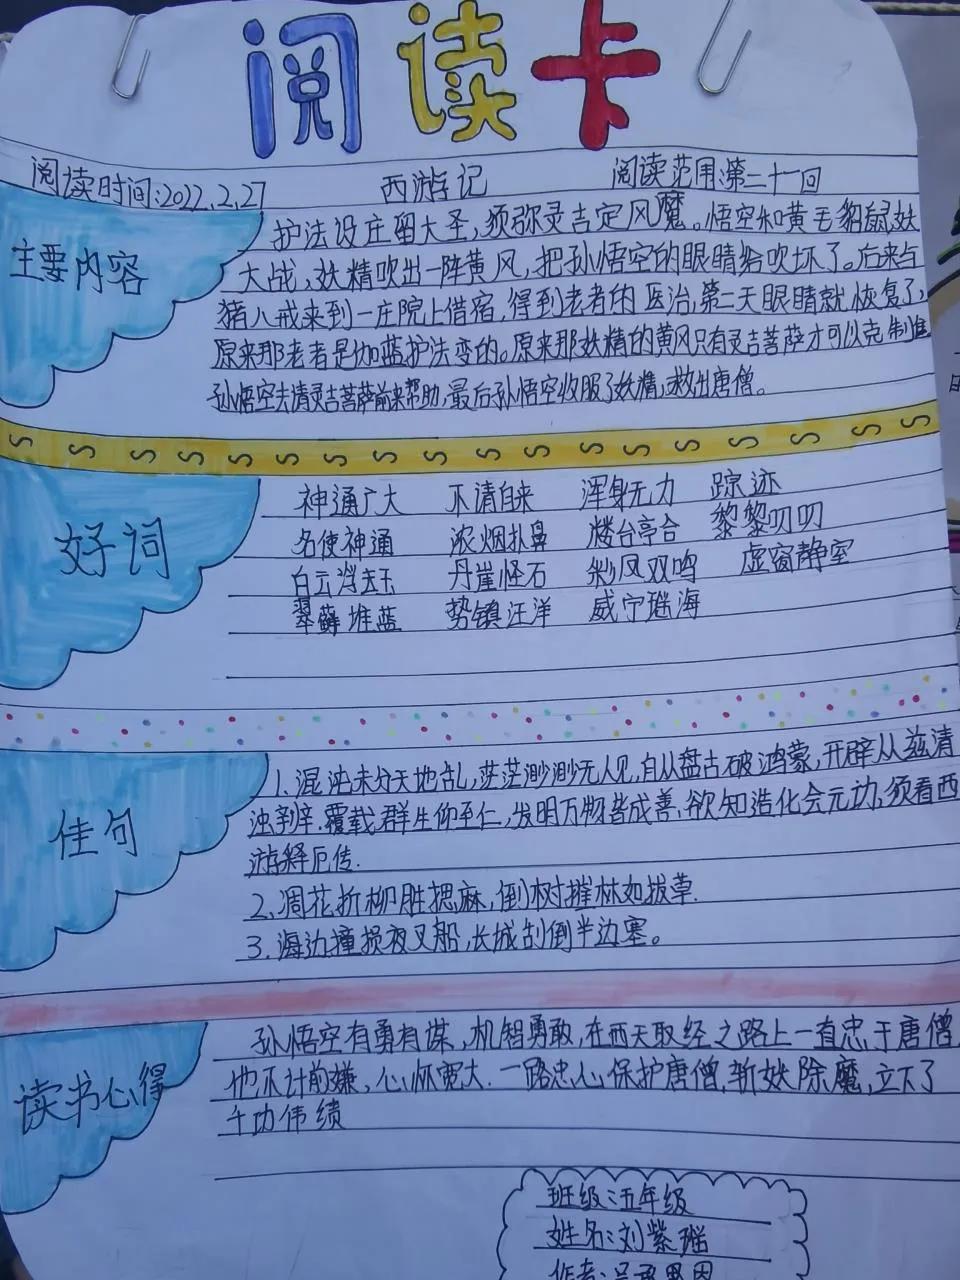 阅读卡
阅读时间:2022.2.27 西游记 阅读范围:第二十一回
主要内容
护法设庄留大圣,须弥灵吉定风魔。悟空和黄毛貂鼠妖
大战,妖精吹出一阵黄风,把孙悟空的眼睛给吹坏了。后来与
猪八戒来到一庄院上借宿,得到老者的医治,第二天眼睛就恢复了,
原来那老者是伽蓝护法变的。原来那妖精的黄风只有灵吉菩萨才可以克制住
孙悟空去请灵吉菩萨前来帮助,最后孙悟空收服了妖精,救出唐僧。
好词
神通广大 不请自来 浑身无力 踪迹
各使神通 浓烟扑鼻 楼台亭合 黎黎叨叨
白云浮玉 丹崖怪石 彩凤双鸣 虚窗静室
翠藓堆蓝 势镇汪洋 威宁瑶海
佳句
1.混沌未分天地乱,茫茫渺渺无人见,自从盘古破鸿蒙,开辟从兹清
浊辨.覆载群生仰至仁,发明万物皆成善,欲知造化会元功,须看西
游释厄传.
2.凋花折柳胜揌麻,倒树摧林如拔草.
3.海边撞损夜叉船,长城刮倒半边塞。
读书心得
孙悟空有勇有谋,机智勇敢,在西天取经之路上一直忠于唐僧
他不计前嫌,心怀宽大.一路忠心保护唐僧,斩妖除魔,立下了
千功伟绩
班级:五年级
姓名:刘紫瑶
作者:吴承恩